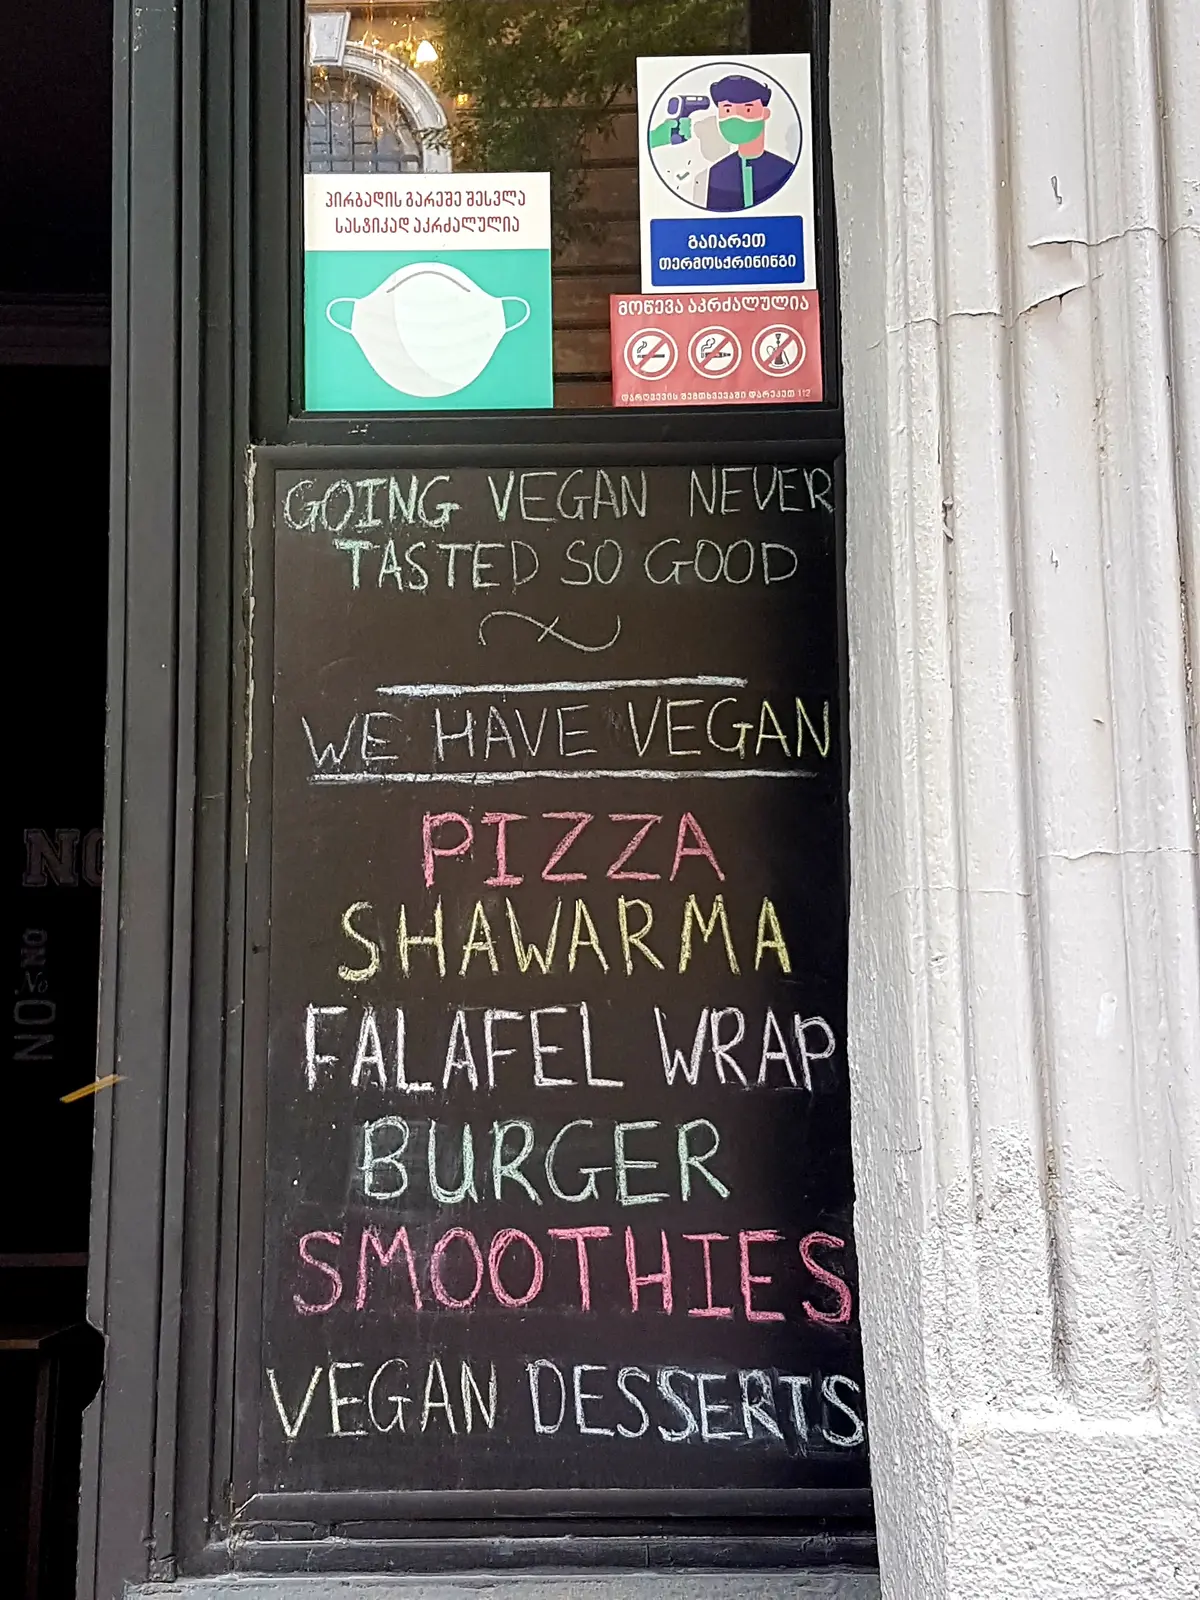 პირბადის გარეშე შესვლა
სასტიკად აკრძალულია
გაიარეთ
თერმოსქრინინგი
მოწევა აკრძალულია
დარღვევის შემთხვევაში დარეკეთ 112
GOING VEGAN NEVER
TASTED SO GOOD
WE HAVE VEGAN
PIZZA
SHAWARMA
FALAFEL WRAP
BURGER
SMOOTHIES
VEGAN DESSERTS
NO
NO No NO